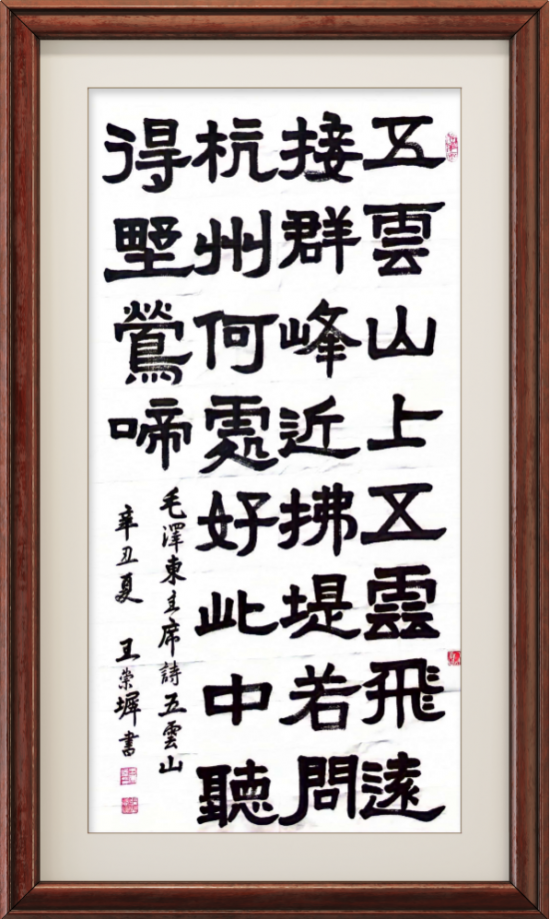 五雲山上五雲飛遠
接群峰近拂堤若問
杭州何處好此中聽
得墅鶯啼
毛澤東主席詩五雲山
辛丑夏 王崇墀書